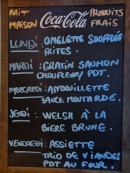 FAIT Coca-Cola PRODUITS
MAISON FRAIS
LUNDI: OMELETTE SOUFFLÉE
FRITES.
MARDI: GRATIN SAUMON
CHOUFLEUR/ PDT.
MERCREDI: ANDOUILLETTE
SAUCE MOUTARDE.
JEUDI: WELSH À LA
BIÈRE BRUNE.
VENDREDI: ASSIETTE
TRIO DE VIANDES
PDT AU FOUR.